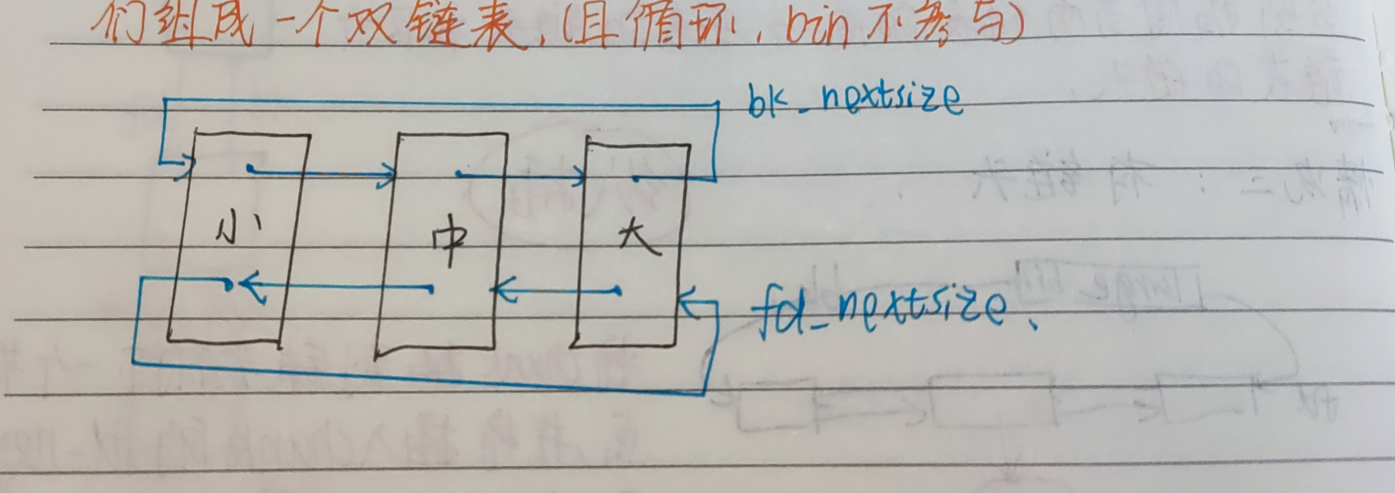 们组成一个双链表,(且循环,bin不参与)
bk_nextsize
小 中 大
fd_nextsize、